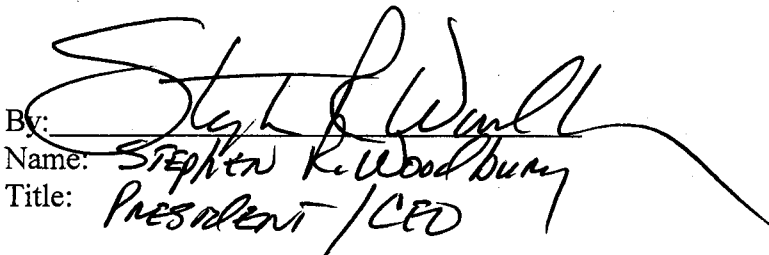 By: Stephen R Woodbury
Name: Stephen R. Woodbury
Title: President / CEO